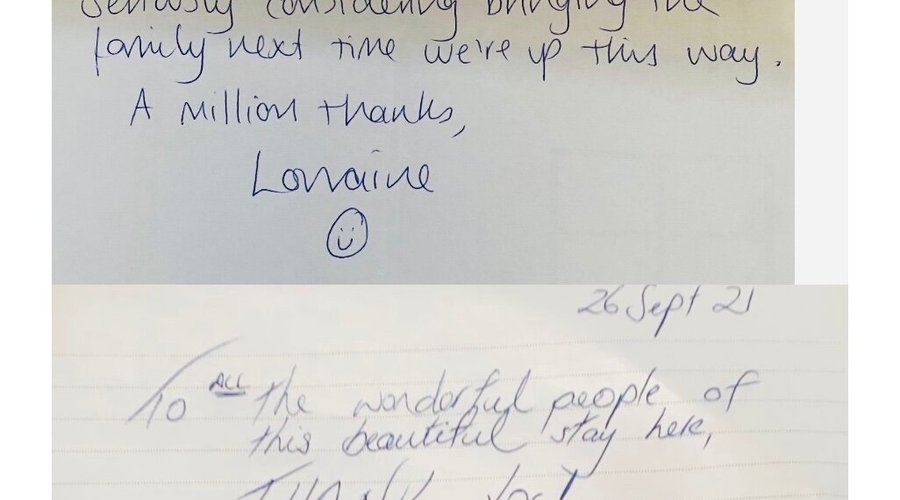 seriously considering bringing the
family next time we're up this way.
A million thanks,
Lorraine
26 Sept 21
To ALL the wonderful people of
this beautiful stay here,